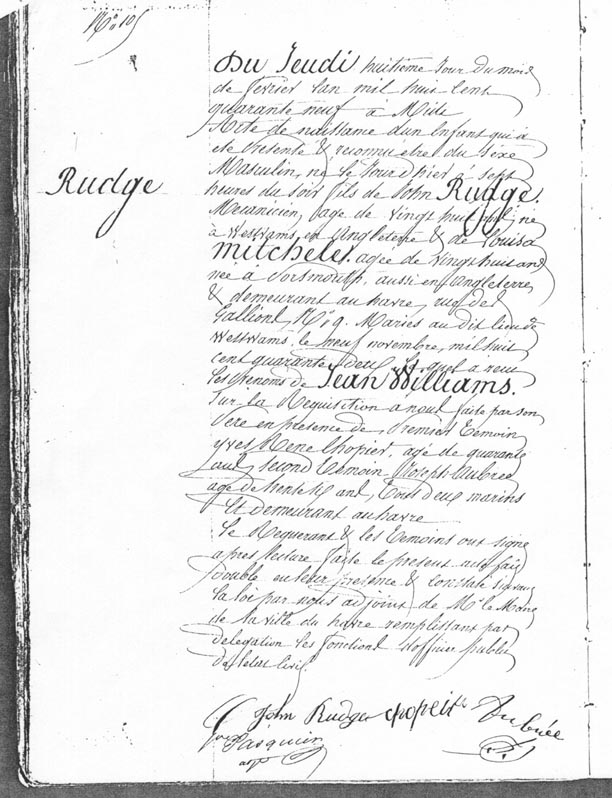 N° 105
Du Jeudi huitième Jour du mois
de fevrier Lan mil huit Cent
quarante neuf à Midi
Acte de naissance d'un Enfant qui a
ete Presenté & reconnu etre du Sexe
Masculin, né le Jour d'hier à sept
Rudge
heures du soir fils de John Rudge.
Mecanicien, agé de Vingt huit ans né
à WestWams en Angleterre & de Louisa
Mitchele. agée de Vingt huit ans
née à Portsmouth, aussi en Angleterre
& demeurant au havre, rue de
Gallions, N° 9. Mariés au dit lieu de
WestWams. le neuf novembre, mil huit
cent quarante deux Lequel a reçu
Les Prenoms de Jean Williams.
Sur la Requisition a nous faite par son
Pere en presence de, Premier Temoin
Yves Rene Chopier, agé de quarante
ans, Second Temoin Joseph Aubree
agé de trente ans, Tous deux marins
Et demeurant au havre
Le Requerant & les Temoins ont signé
apres lecture faite le present acte fait
double en leur presence & Constaté Suivant
La loi par nous adjoint de Mr. le Maire
de la ville du havre remplissant par
delegation les fonctions d'officier public
de l'etat Civil.
John Rudge Chopeit Aubrée
Pasquier